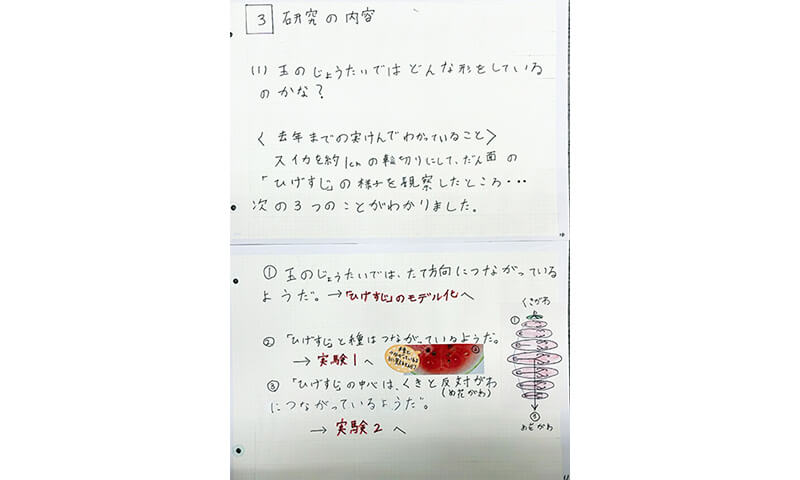 3 研究の内容
(1) 玉のじょうたいではどんな形をしている
のかな?
〈去年までの実けんでわかっていること〉
スイカを約1cmの輪切りにして、だん面の
「ひげすじ」の様子を観察したところ・・・
次の3つのことがわかりました。
① 玉のじょうたいでは、たて方向につながっている
ようだ。→「ひげすじ」のモデル化へ
② 「ひげすじ」と種はつながっているようだ。
→ 実験1へ
③ 「ひげすじ」の中心は、くきと反対がわ
(め花がわ)
につながっているようだ。
→ 実験2へ
くきがわ
①
③